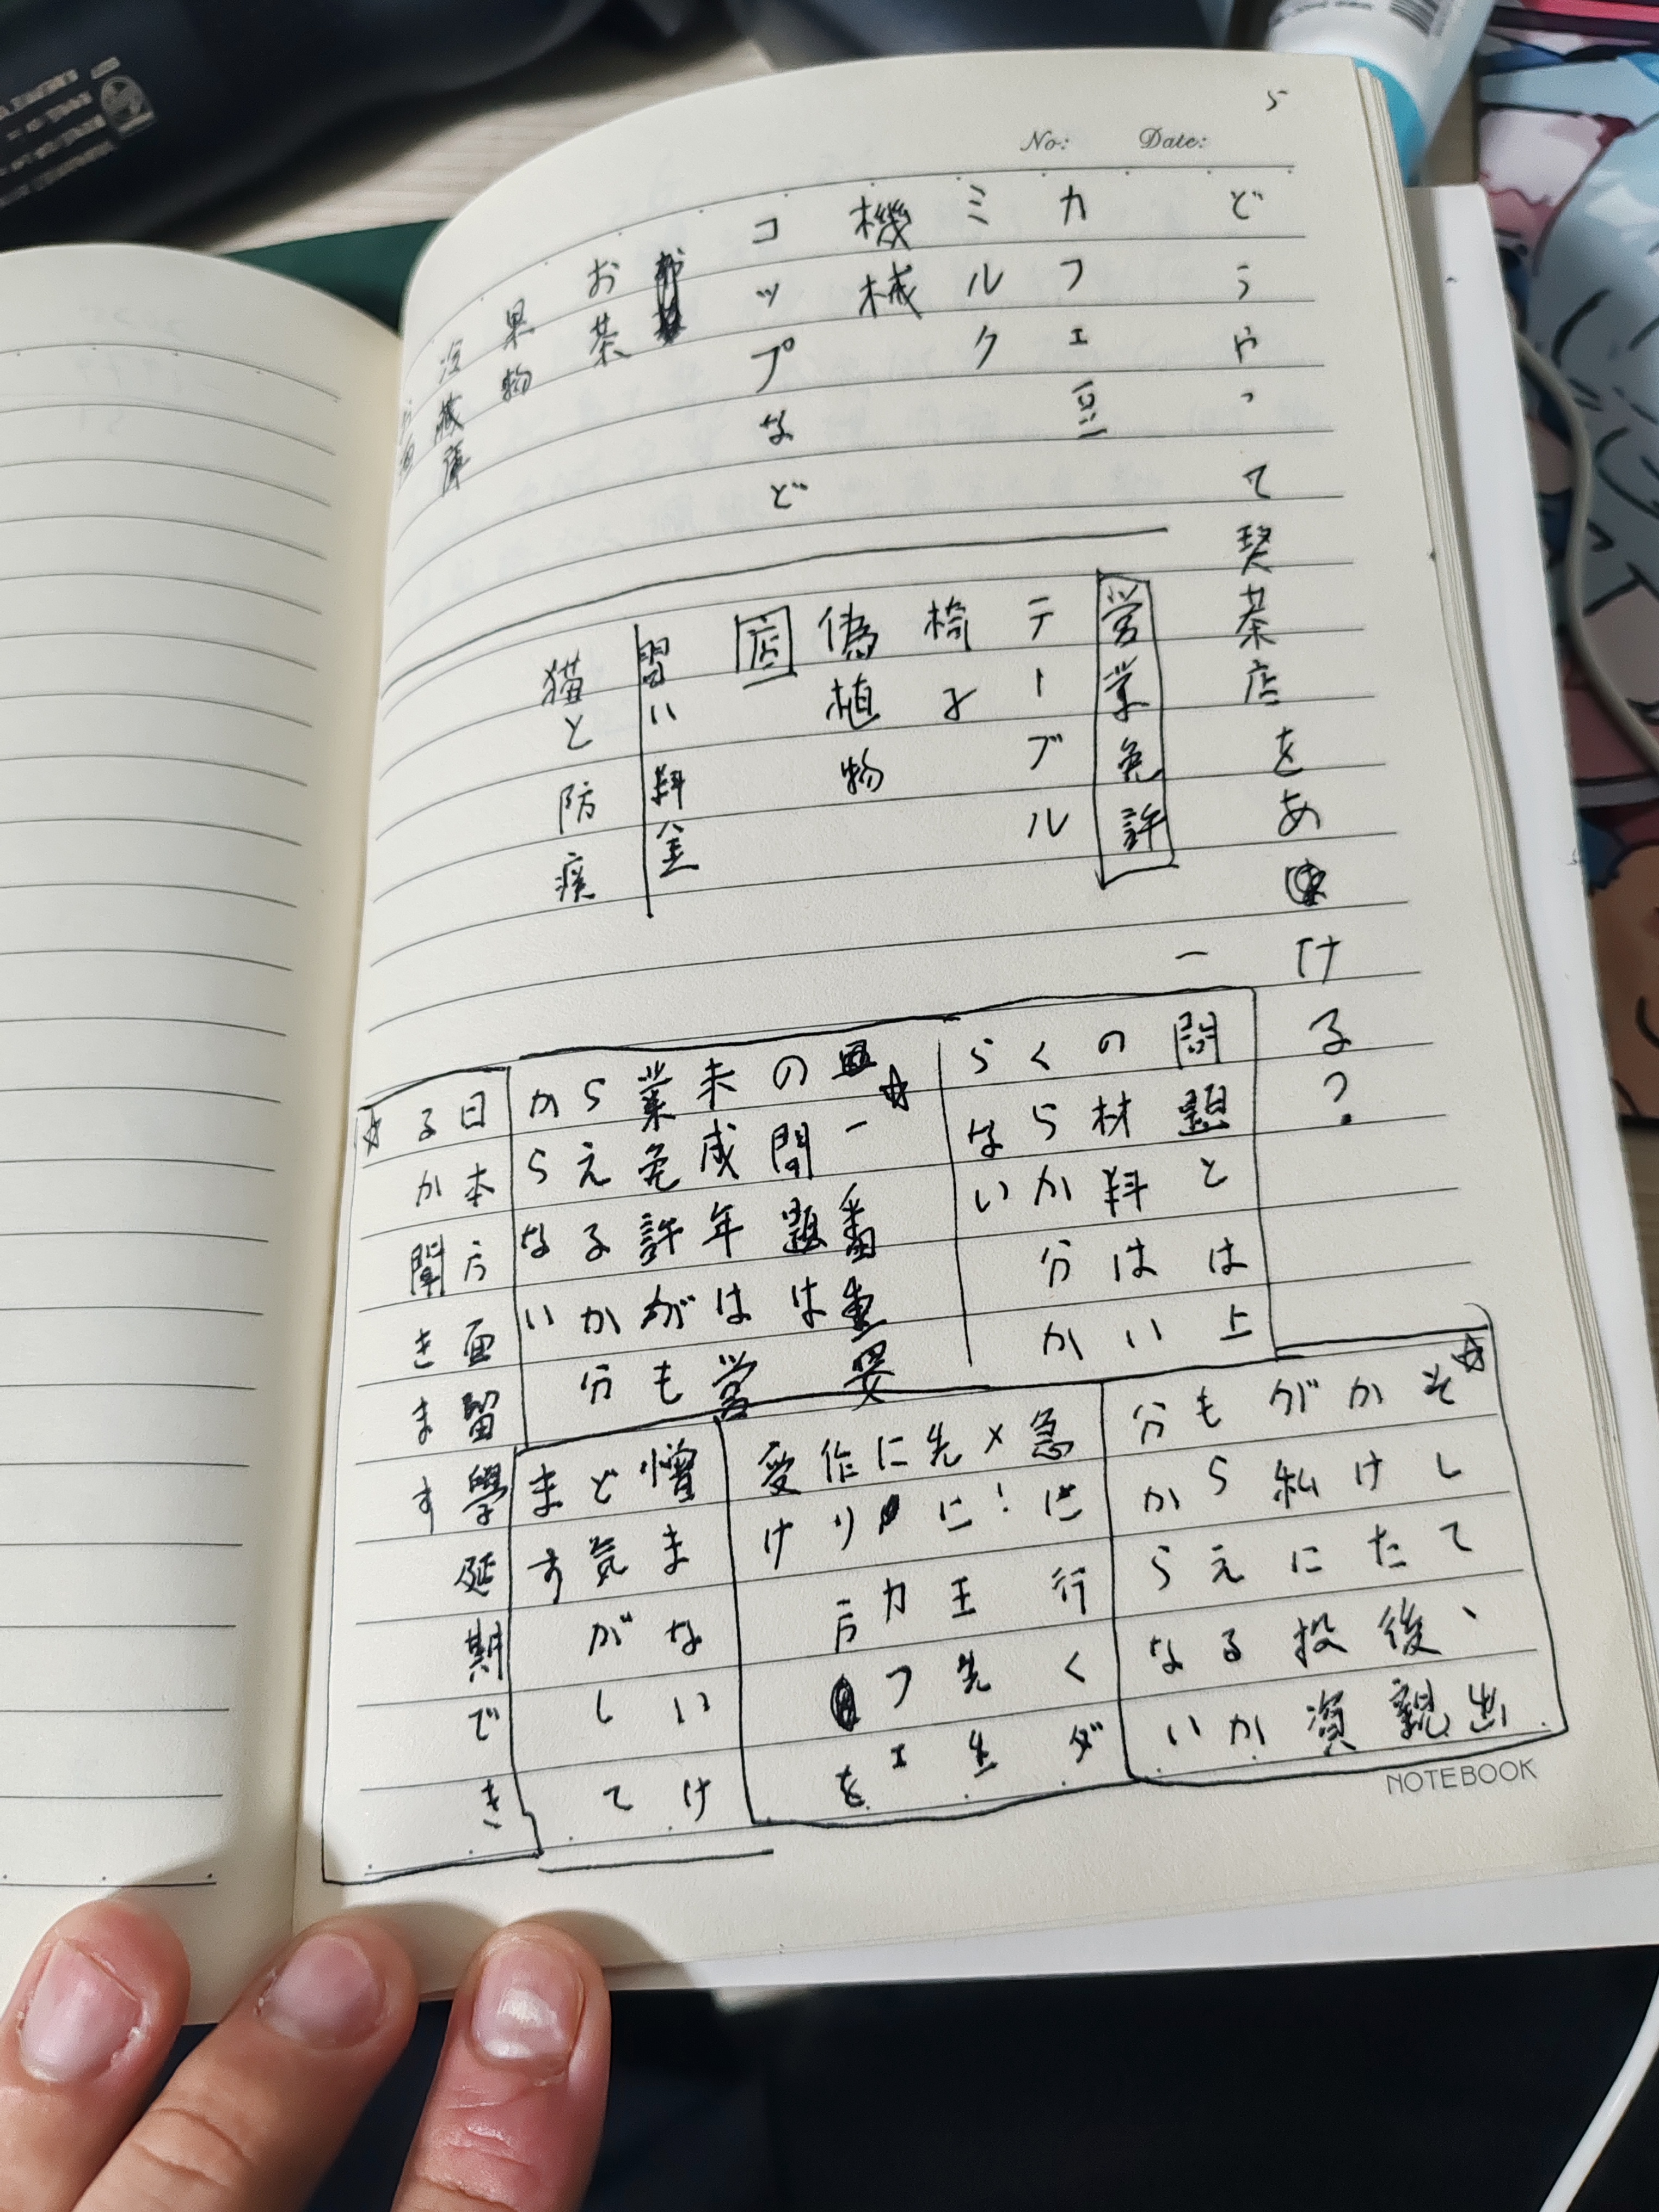 5
No:
Date:
どうやって契茶店をあける?
カフェ豆
ミルク
機械
コップなど
お茶
果物
冷蔵庫
営業免許
テーブル
椅子
偽植物
店
習い料金
猫と防疫
一
問題とは上
の材料はい
くらか分か
らない
☆
一番重要
の問題は
未成年は営
業免許がも
らえるか分
からない
☆
そして、出
かけた後、親
が私に投資
もらえるか
分からない
急に行くダ
メ!王先生
先にカフェ
に作り方を
受け
憎まないけ
ど気がして
ます
日本方面留學延期でき
るか聞きます
☆
NOTEBOOK